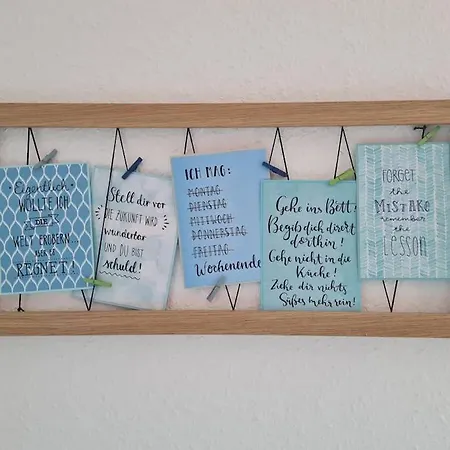 Eigentlich
WOLLTE ICH
DIE
WELT EROBERN...
ABER ES
REGNET!
Stell dir vor
DIE ZUKUNFT WIRD
wundervoll
UND DU BIST
schuld!
ICH MAG:
MONTAG
DIENSTAG
MITTWOCH
DONNERSTAG
FREITAG
Wochenende
Gehe ins Bett!
Begib dich direkt
dorthin!
Gehe nicht in die
Küche!
Ziehe dir nichts
Süßes mehr rein!
FORGET
the
MISTAKE
remember
the
LESSON